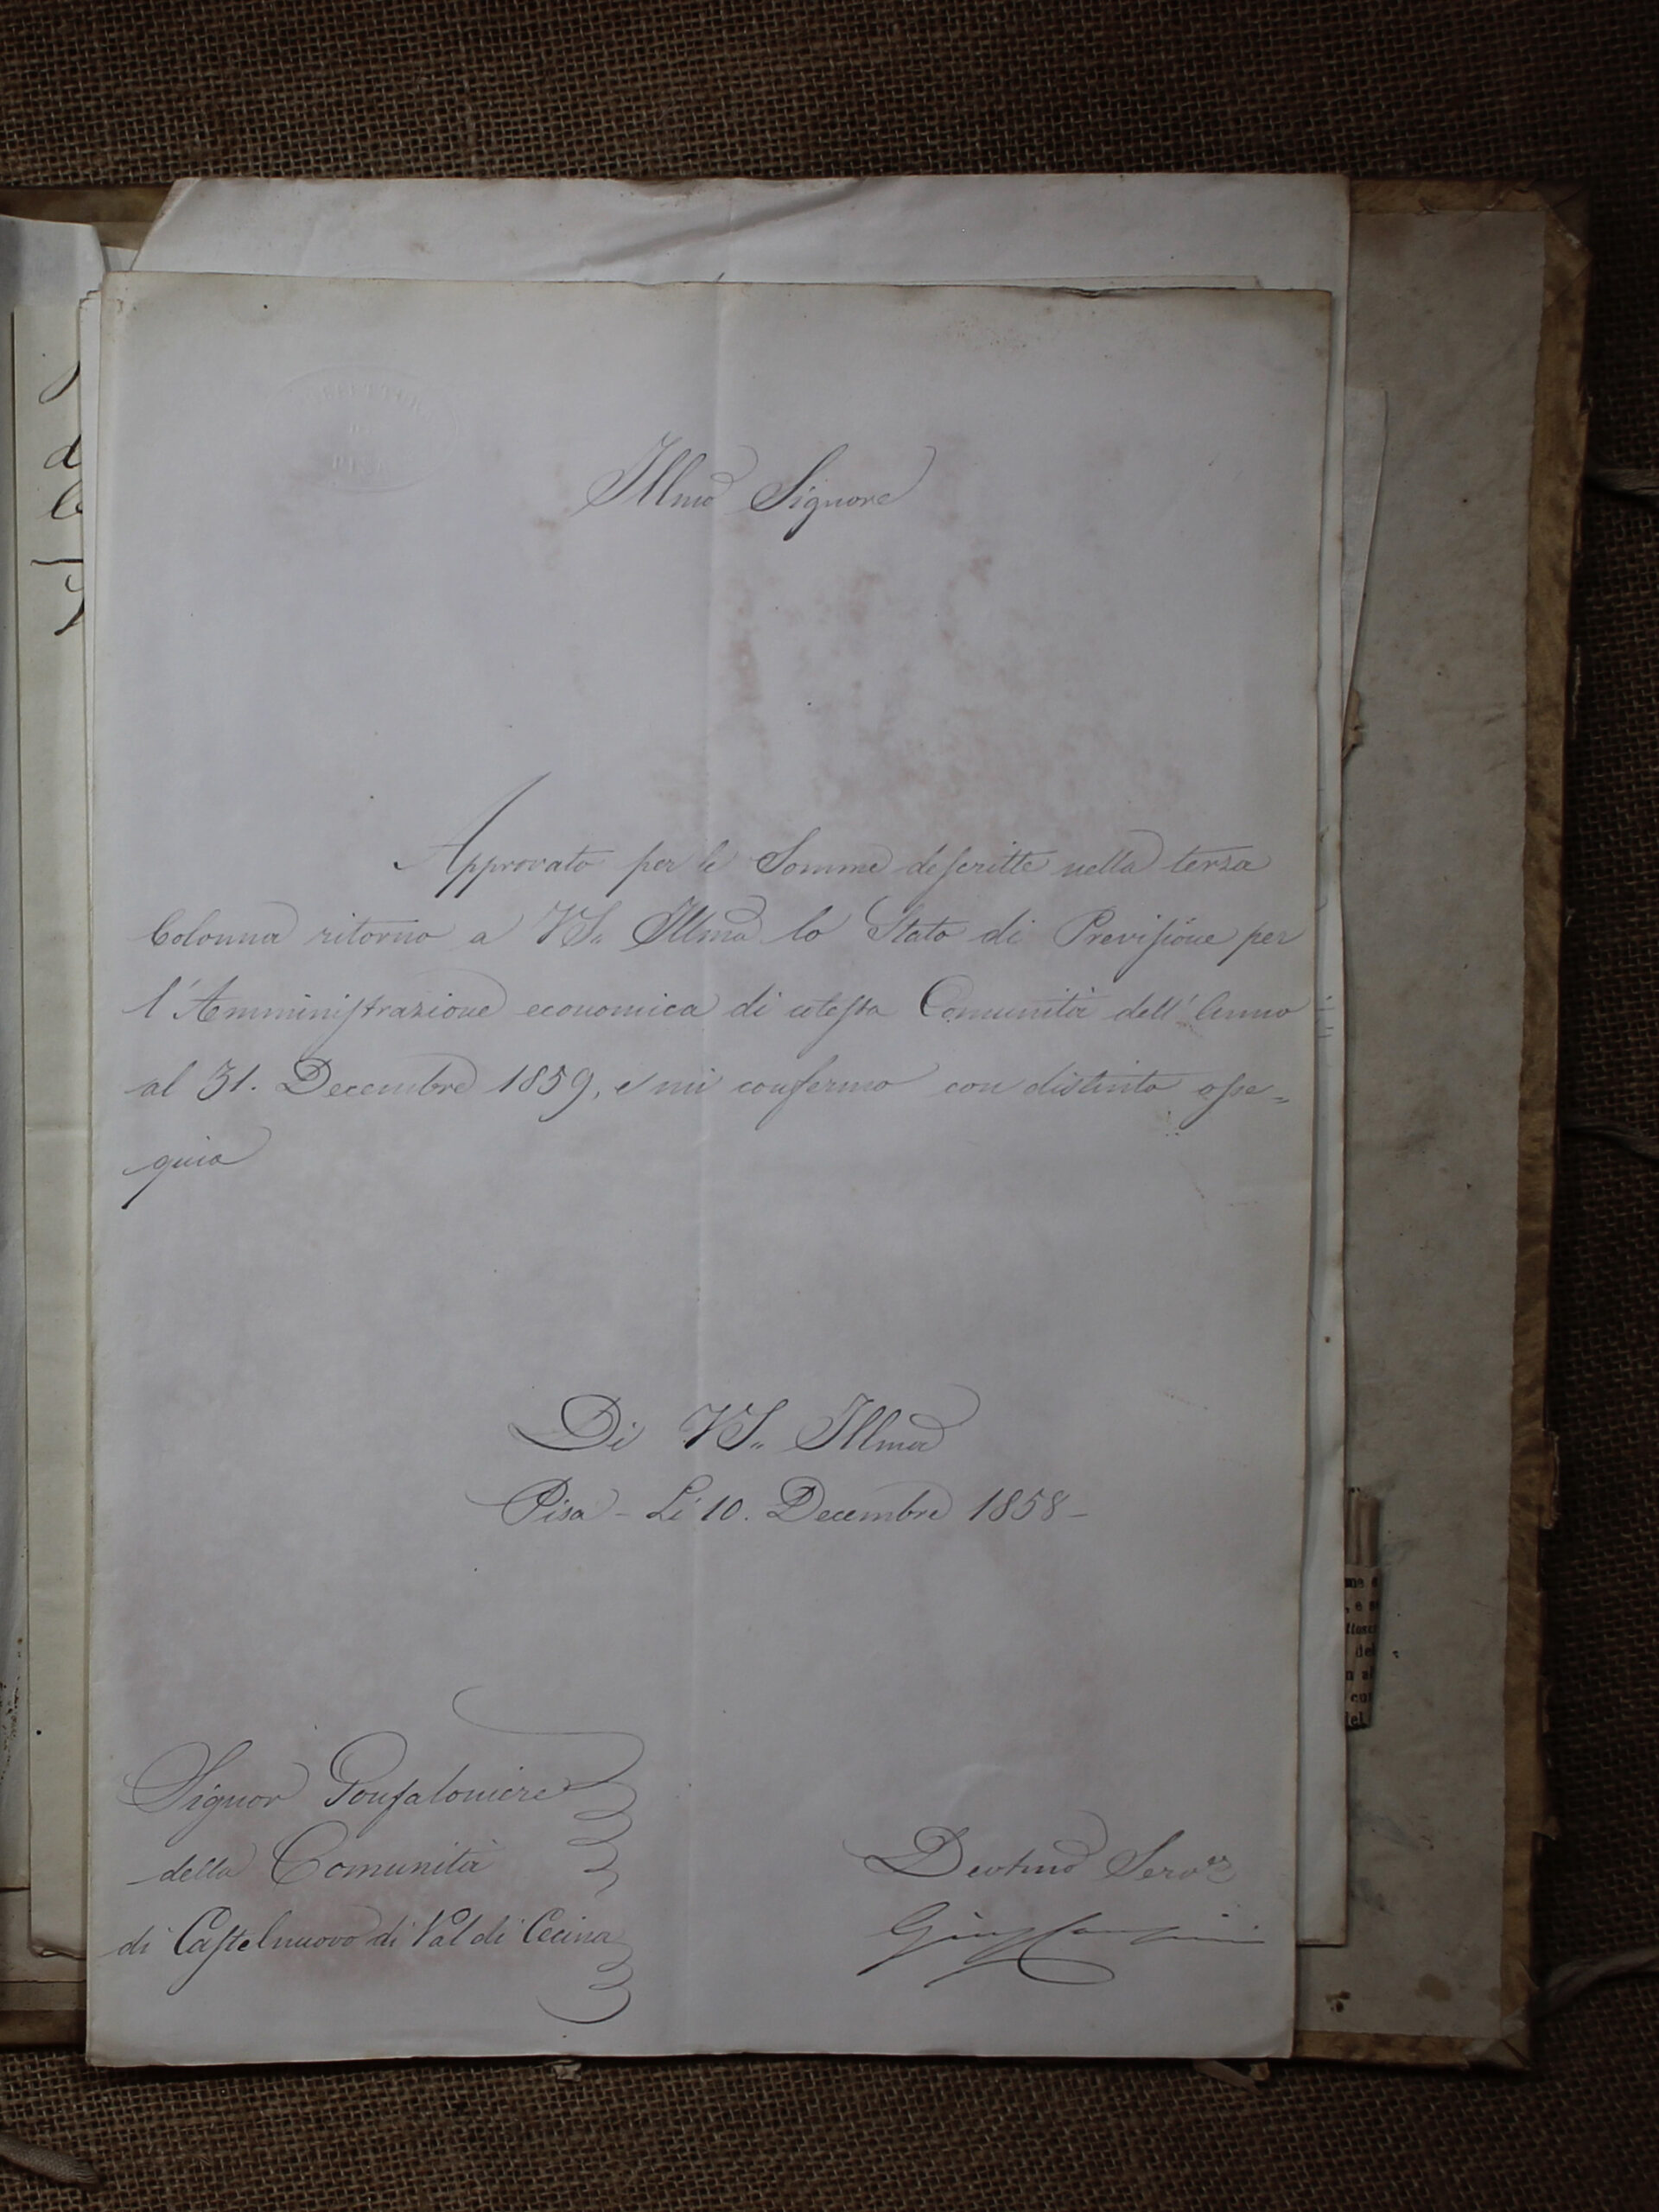 PREFETTURA
DI
PISA
Illmo Signore
Approvato per le Somme descritte nella terza
Colonna ritorno a VS. Illma lo Stato di Previsione per
l'Amministrazione economica di cotesta Comunità dell'Anno
al 31. Decembre 1859, e mi confermo con distinto osse=
quio
Di VS. Illma
Pisa - Li 10. Decembre 1858 -
Signor Gonfaloniere
della Comunità
di Castelnuovo di Val di Cecina
Devotmo Servre